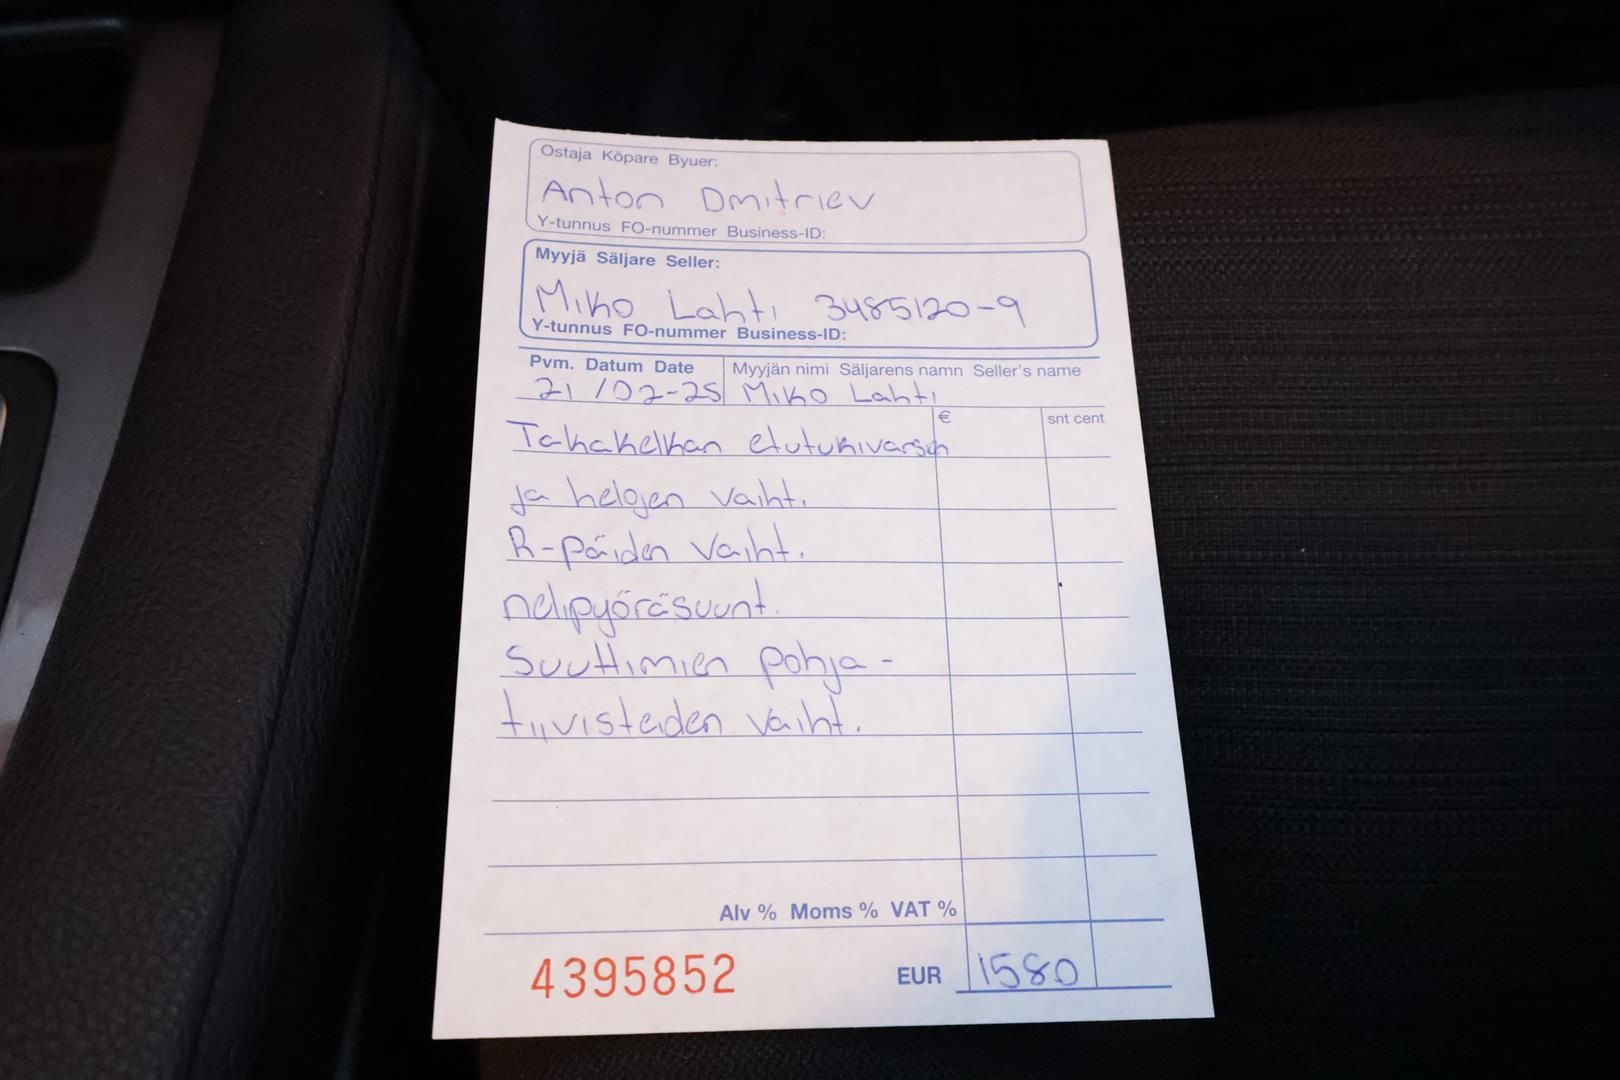 Ostaja Köpare Byuer:
Anton Dmitriev
Y-tunnus FO-nummer Business-ID:
Myyjä Säljare Seller:
Miko Lahti 3485120-9
Y-tunnus FO-nummer Business-ID:
Pvm. Datum Date Myyjän nimi Säljarens namn Seller's name
21/02-25 Miko Lahti
€ snt cent
Takakelkan etutukivarsien
ja helojen vaiht.
R-päiden vaiht.
nelipyöräsuunt.
Suuttimien pohja-
tiivisteiden vaiht.
Alv % Moms % VAT %
4395852 EUR 1580